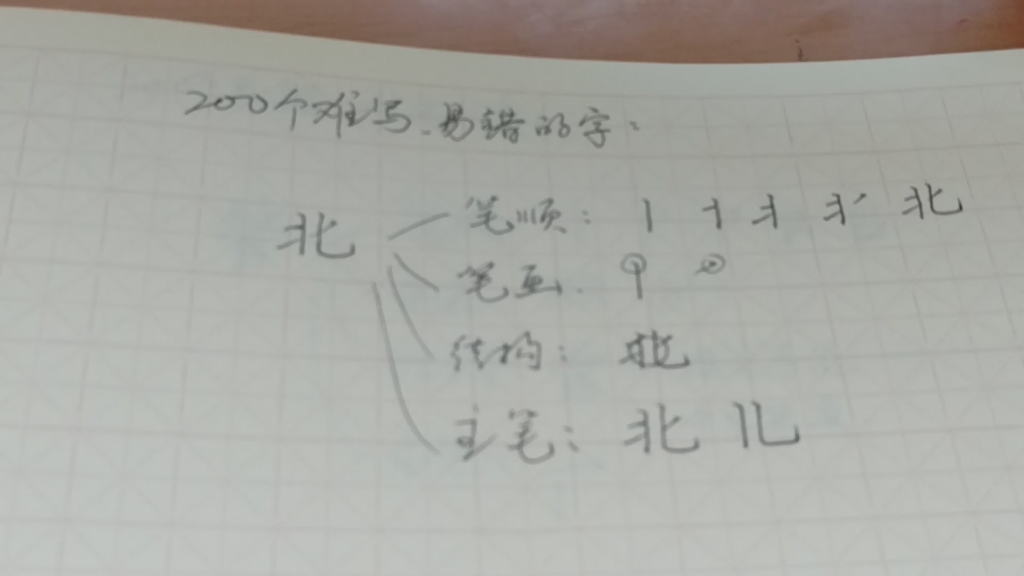 200个难写.易错的字:
北
笔顺: 北
笔画.
结构: 北
主笔: 北